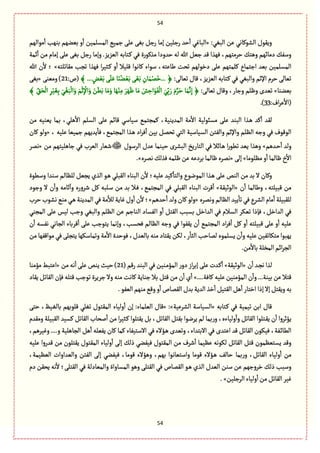 ويقول الشوكاني عن البغي: «الباغي أحد رجلين إما رجل بغى على جميع المسلمين أو بعضهم بنهب أموالهم
وسفك دمائهم وهتك حرمتهم، فهذا قد جعل الله له حدودا مذكورة في كتابه العزيز. وإما رجل بغى على إمام من أئمة
المسلمين بعد اجتماع كلمتهم على دخولهم تحت طاعته، سواء كانوا قليلا أو كثيرا فهذا تجب مقاتلته» ؛ لأن الله
تعالى حرم الإثم والبغي في كتابه العزيز، قال تعالى: ﴿ ...خَصْمَانِ بَغَى بَعْضُنَا عَلَى بَعْضٍ ... ﴾ (ص:21) ومعنى «بغى
بعضنا» تعدى وظلم وجار، وقال تعالى: ﴿ إِنَّمَا حَرَّمَ رَبِّيَ الْفَوَاحِشَ مَا ظَهَرَ مِنْهَا وَمَا بَطَنَ وَالْإِثْمَ وَالْبَغْيَ بِغَيْرِ الْحَقِّ ﴾
(الأعراف:33).
لقد أكد هذا البند على مسئولية الأمة المدينية، كمجتمع سياسي قائم على السلم الأهلي، بما يعنيه من
الوقوف في وجه الظلم والإثم والفتن السياسية التي تحصل بين أفراد هذا المجتمع، فأيديهم جميعا عليه، «ولو كان
ولد أحدهم» وهذا يعد تطورا هائلا في التاريخ البشري حينما عدل الرسول ﷺ شعار العرب في جاهليتهم من «نصر
الأخ ظالما أو مظلوما» إلى «نصره ظالما بردعه عن ظلمه فذلك نصره».
وكان لا بد من النص على هذا الموضوع والتأكيد عليه؛ لأن البناء القبلي هو الذي يجعل للظالم سندا وسطوة
من قبيلته، وطالما أن «الوثيقة» أقرت البناء القبلي في المجتمع، فلا بد من سلبه كل شروره وآثامه وأن لا وجود
للقبلية أمام الشرع في تأييد الظالم ونصره «ولو كان ولد أحدهم»؛ لأن أول غاية للأمة في المدينة هي منع نشوب حرب
في الداخل، فإذا تعكر السلام في الداخل بسبب القتل أو الفساد الناجم عن الظلم والبغي وجب ليس على المجني
عليه أو على قبيلته أو كل أفراد المجتمع أن يقفوا في وجه الظالم فحسب، وإنما يتوجب على أقرباء الجاني نفسه أن
يهبوا متكاتفين عليه وأن يسلموه لصاحب الثأر، لكي يقتاد منه بالعدل، فوحدة الأمة وتماسكها يتجلى في مواقفها من
الجرائم المخلة بالأمن.
لذا نجد أن «الوثيقة» أكدت على إبراز دور المؤمنين في البند رقم (21) حيث ينص على أنه من «اعتبط مؤمنا
قتلا عن بينة... وأن المؤمنين عليه كافة...» أي أن من قتل بلا جناية كانت منه ولا جريرة توجب قتله فإن القاتل يقاد
به ويقتل إلا إذا اختار أهل القتيل أخذ الدية بدل القصاص أو وقع منهم العفو .
قال ابن تيمية في كتابه «السياسة الشرعية»: «قال العلماء: إن أولياء المقتول تغلي قلوبهم بالغيظ ، حتى
يؤثروا أن يقتلوا القاتل وأولياءه ، وربما لم يرضوا بقتل القاتل ، بل يقتلوا كثيرا من أصحاب القاتل كسيد القبيلة ومقدم
الطائفة ، فيكون القاتل قد اعتدى في الابتداء ، وتعدى هؤلاء في الاستيفاء كما كان يفعله أهل الجاهلية و.... وغيرهم ،
وقد يستعظمون قتل القاتل لكونه عظيما أشرف من المقتول فيفضي ذلك إلى أولياء المقتول يقتلون من قدروا عليه
من أولياء القاتل ، وربما حالف هؤلاء قوما واستعانوا بهم ، وهؤلاء قوما ، فيفضي إلى الفتن والعداوات العظيمة ،
وسبب ذلك خروجهم عن سنن العدل الذي هو القصاص في القتلى وهو المساواة والمعادلة في القتلى ؛ لأنه يحقن دم
غير القاتل من أولياء الرجلين» .
54
54